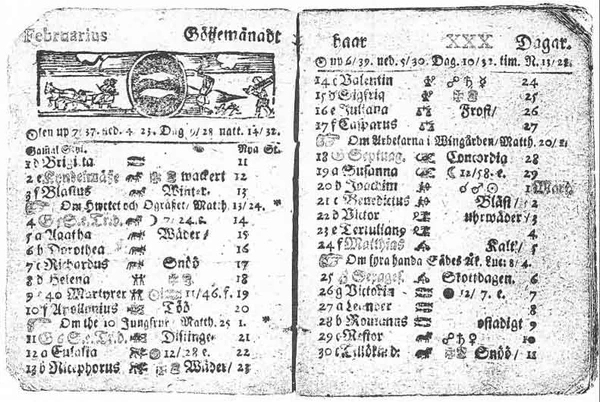 Februarius Götjemånadt
Solen up 7/37. ned. 4 23. Dag 9/28 natt. 14/32.
Gamal Styl. Nya St.
1 d Brigitta 12
2 e Kyndelmässe wackert 11
3 f Blasius Winter. 13
Om Hwetet och Ogräset/ Matth. 13/24.
4 G 5 S. e. Tr. d. 7/24. e. 14
5 a Agatha Wäder/ 15
6 b Dorothea 16
7 c Richardus Snöö 17
8 d Helena 18
9 e 40 Martyrer 11/46. f. 19
10 f Apollonius Töö 20
Om the 10 Jungfrur Matth. 25 1.
11 G 6 S. e. Tr. d. Distinge. 21
12 a Eulalia 12/28 e. 22
13 b Nicephorus Wäder/ 23
haar XXX Dagar.
up 6/39. ned. 5/30. Dag. 10/32. tim. N. 13/28.
14 c Valentin 24
15 d Sigfrid 25
16 e Juliana Frost/ 26
17 f Casparus 27
Om Arbetarna i Wingården/ Matth. 20/1.
18 G Septuag. Concordia 28
19 a Susanna 12/58. e. 29
20 b Joachim 1 Mart.
21 c Benedictus Bläst/ 2
22 d Victor uhrwäder/ 3
23 e Tertuliang 4
24 f Matthias Kalt/ 5
Om fyra handa Sädes Åk. Luc. 8/4.
25 G Sexages. Skottdagen. 6
26 g Victorin 12/7. e. 7
27 a Leander 8
28 b Romanus ostadigt 9
29 c Nestor 10
30 c Tillökn d: Snöö/ 11